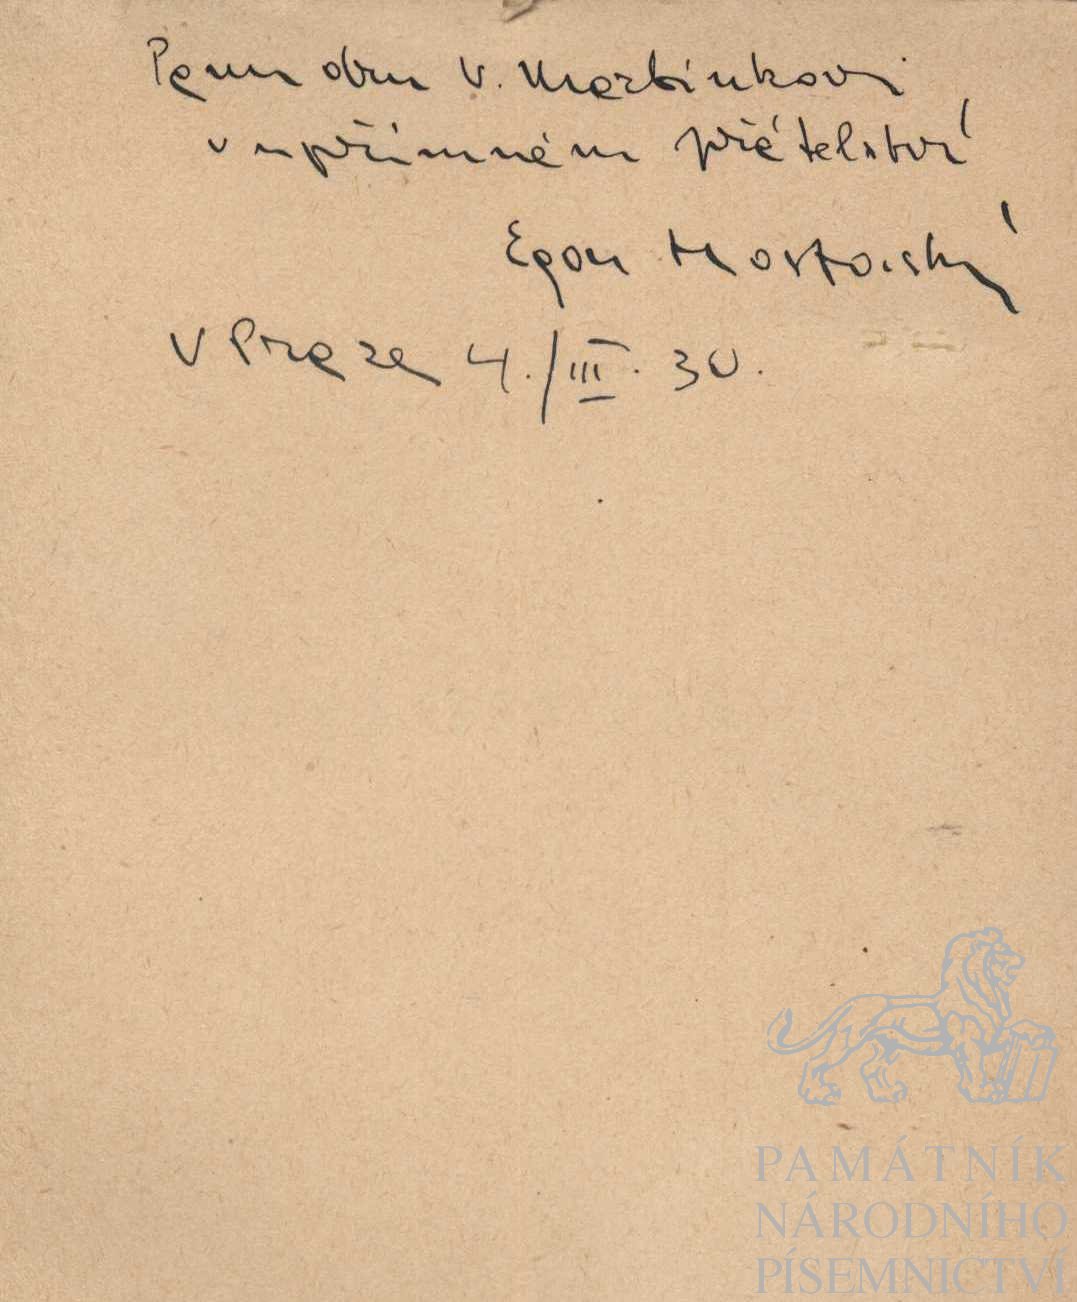 Panu dru V. Martínkovi
v upřímném přátelství
Egon Hostovský
V Praze 4./III. 30.
PAMÁTNÍK
NÁRODNÍHO
PÍSEMNICTVÍ